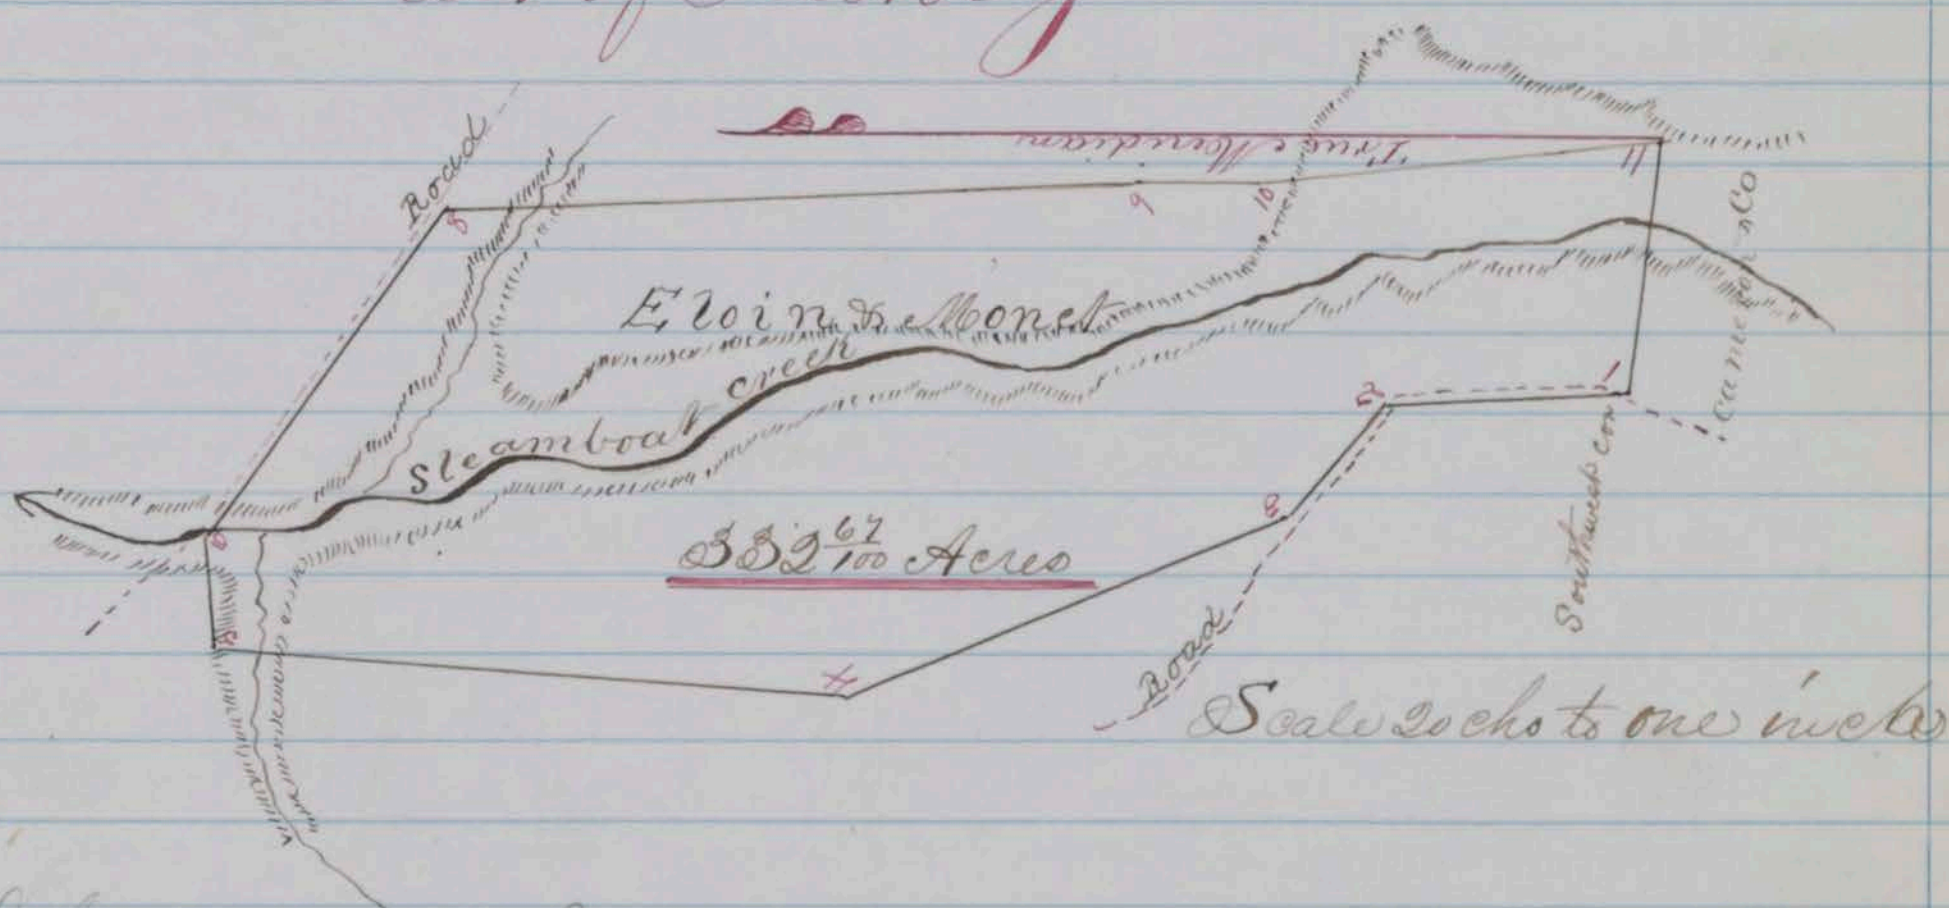 Road
True Meridian
8
9
10
11
Eloin & Monet
Steamboat creek
Cameron Co
1
2
3
4
5
6
Southwest cor
332 67/100 Acres
Road
Scale 20 chs to one inch